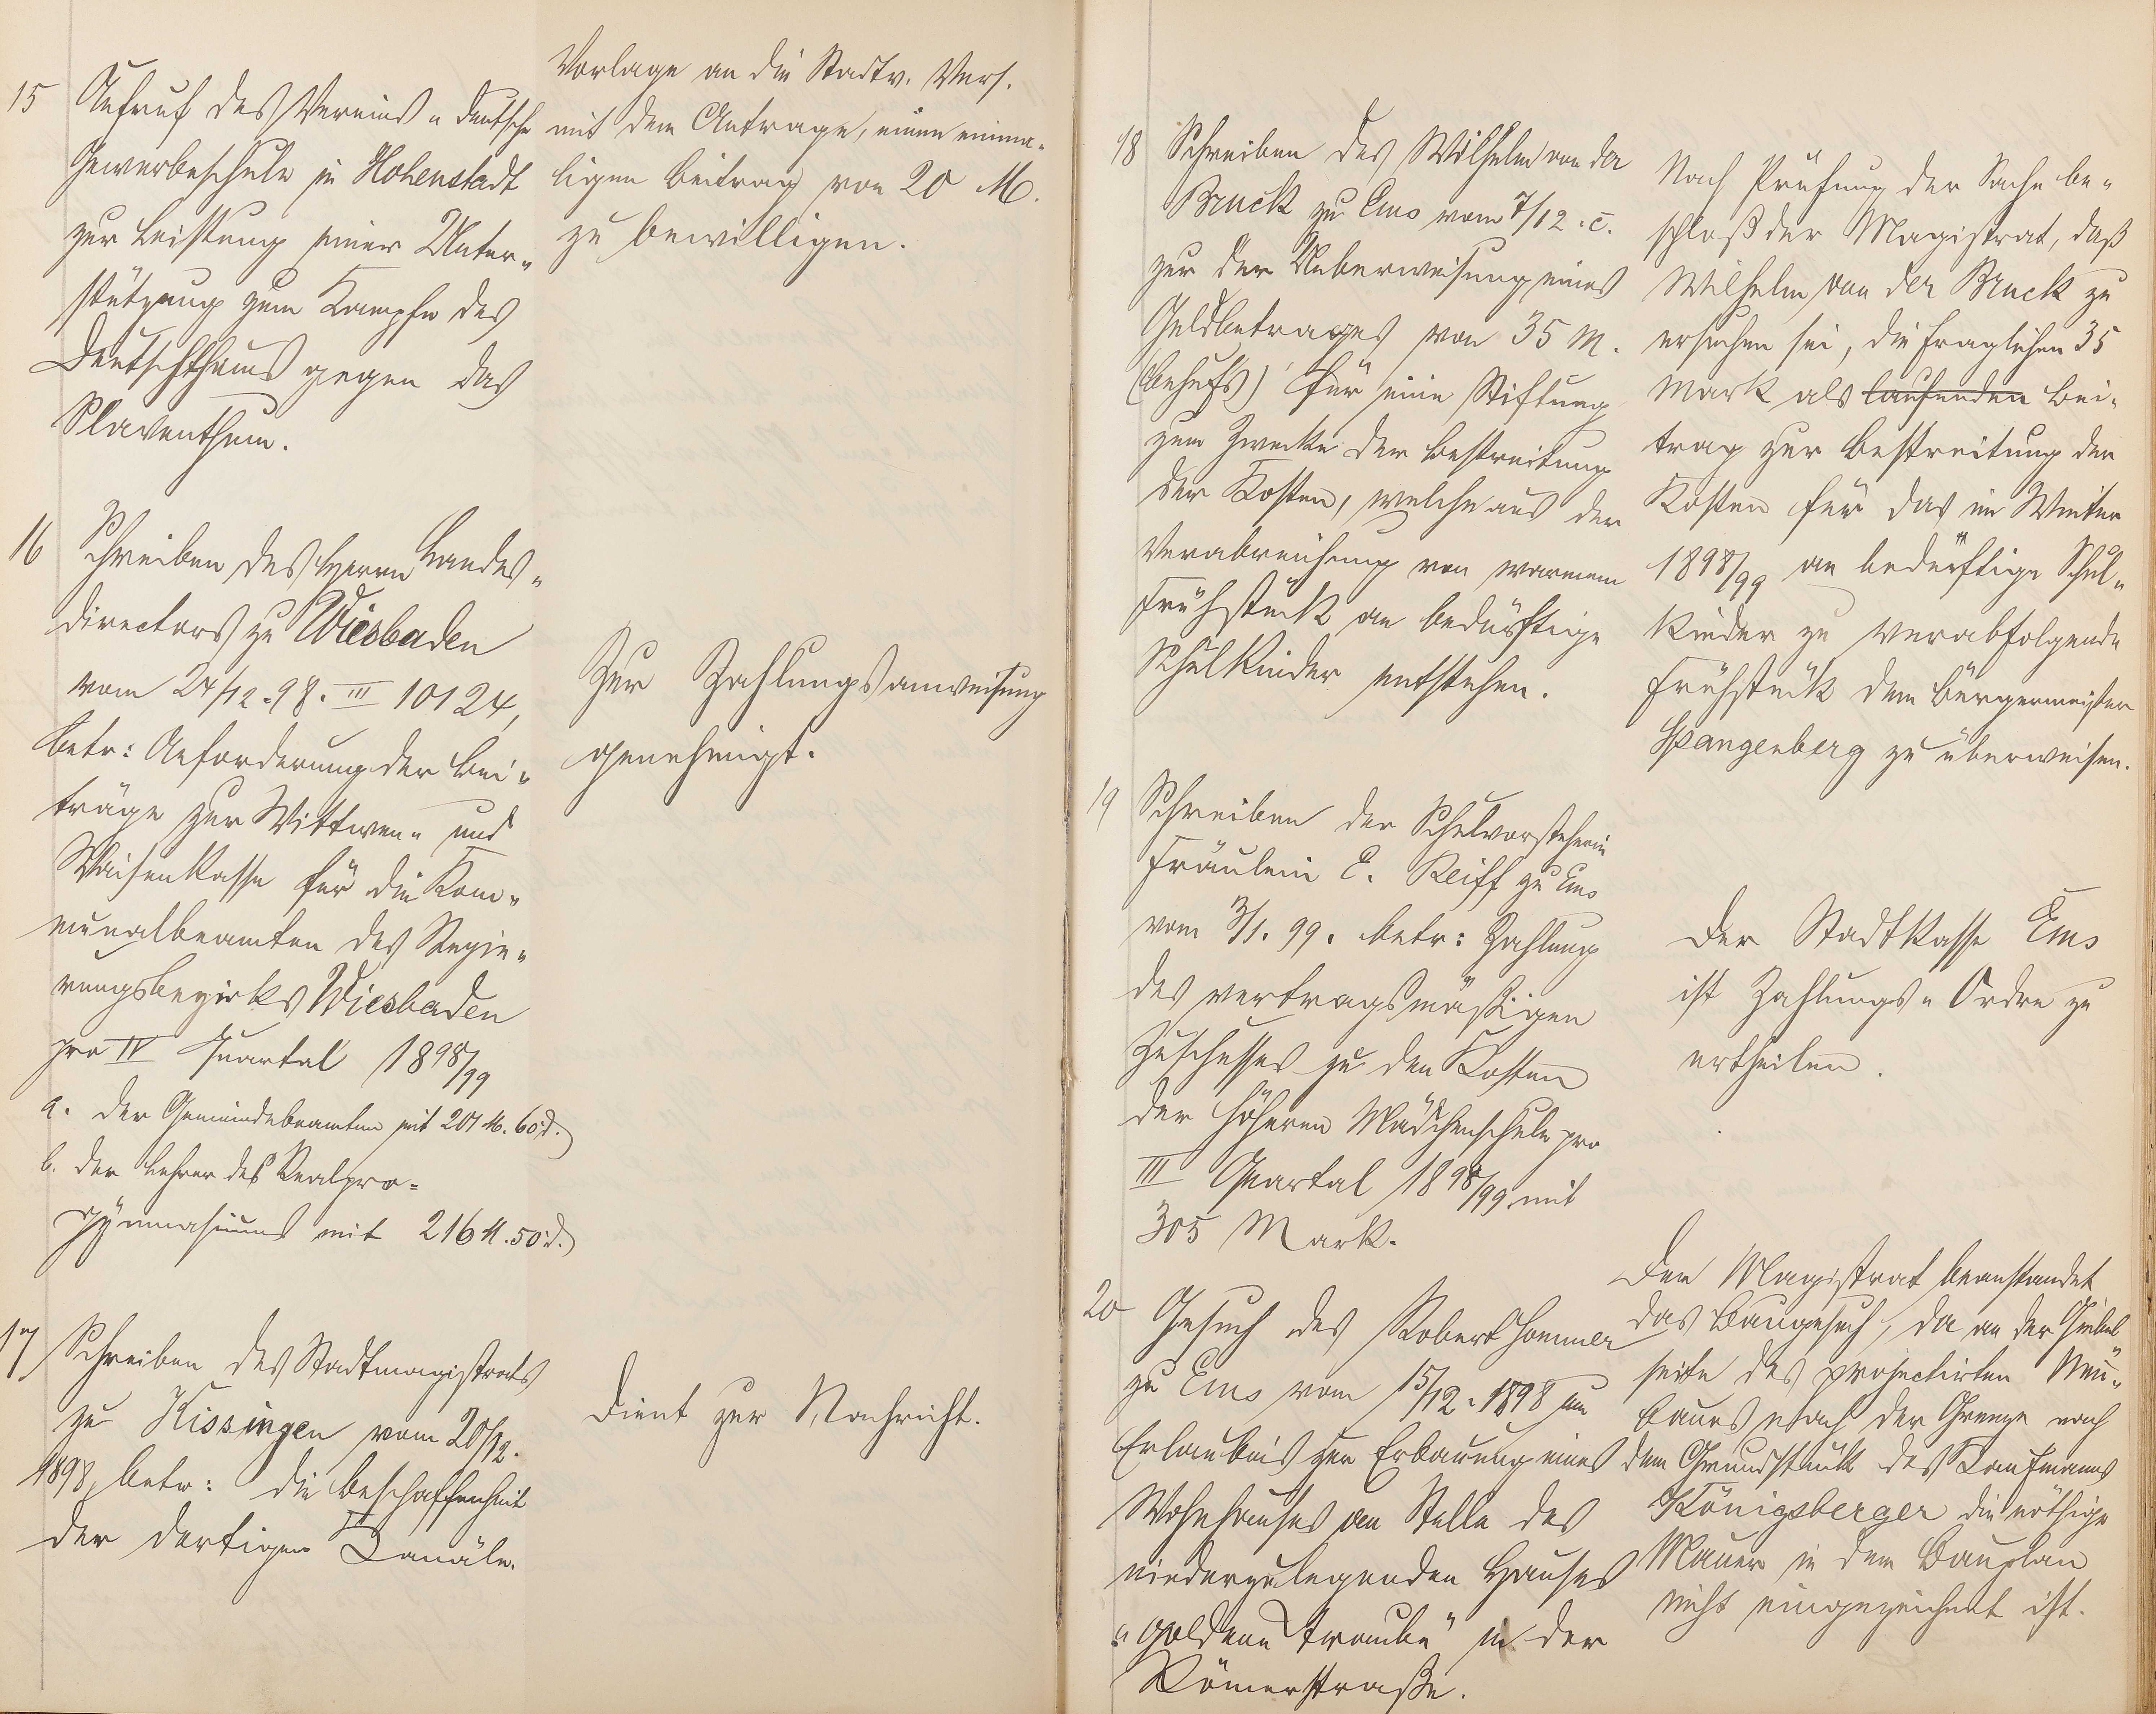 15
Aufruf des Vereins „deutsche
Gewerbeschule in Hohenstadt
zur Leistung einer Unter„
stützung zum Kampfe des
Deutschthums gegen das
Slaventhum.
Vorlage an die Stadtv. Vers.
mit dem Antrage, einen einma„
ligen Beitrag von 20 M.
zu bewilligen.
16
Schreiben des Herrn Landes„
directors zu Wiesbaden
vom 24/12.98. III 10124,
betr: Anforderung der Bei„
träge zur Wittwen„ und
Waisenkasse für die Kom„
munalbeamten des Regie„
rungsbezirks Wiesbaden
pro IV Quartal 1898/99
a. der Gemeindebeamten mit 201 M. 60 d.
b. der Lehrer des Realpro=
gymnasiums mit 216 M. 50 d.
Zur Zahlungsanweisung
genehmigt.
17
Schreiben des Stadtmagistrats
zu Kissingen vom 20/12.
1898, betr: die Beschaffenheit
der dortigen Canäle.
Dient zur Nachricht.
18
Schreiben des Wilhelm von der
Bruck zu Ems vom 7/12. c.
zur der Ueberweisung eines
Geldbetrages von 35 M.
(behufs) für eine Stiftung
zum Zwecke der Bestreitung
der Kosten, welche aus der
Verabreichung von warmem
Frühstück an bedürftige
Schulkinder entstehen.
Nach Prüfung der Sache be„
schloß der Magistrat, daß
Wilhelm von der Bruck zu
ersuchen sei, die fraglichen 35
Mark als laufenden Bei„
trag zur Bestreitung der
Kosten für das im Winter
1898/99 an bedürftige Schul„
kinder zu verabfolgende
Frühstück dem Bürgermeister
Spangenberg zu überweisen.
19
Schreiben der Schulvorsteherin
Fräulein E. Reiff zu Ems
vom 3/1. 99. betr: Zahlung
des vertragsmäßigen
Zuschusses zu den Kosten
der höheren Mädchenschule pro
III Quartal 1898/99 mit
305 Mark.
Der Stadtkasse Ems
ist Zahlungs„Ordre zu
ertheilen.
20
Gesuch des Robert Hommer
zu Ems vom 15/12. 1898 um
Erlaubnis zur Erbauung eines
Wohnhauses an Stelle des
niederzulegenden Hauses
„goldene Traube" in der
Römerstraße.
Der Magistrat beanstandet
das Baugesuch, da an der Giebel
seite des projectirten Neu„
baues nach der Grenze nach
dem Grundstück des Kaufmanns
Königsberger die nöthige
Mauer in dem Bauplan
nicht eingezeichnet ist.